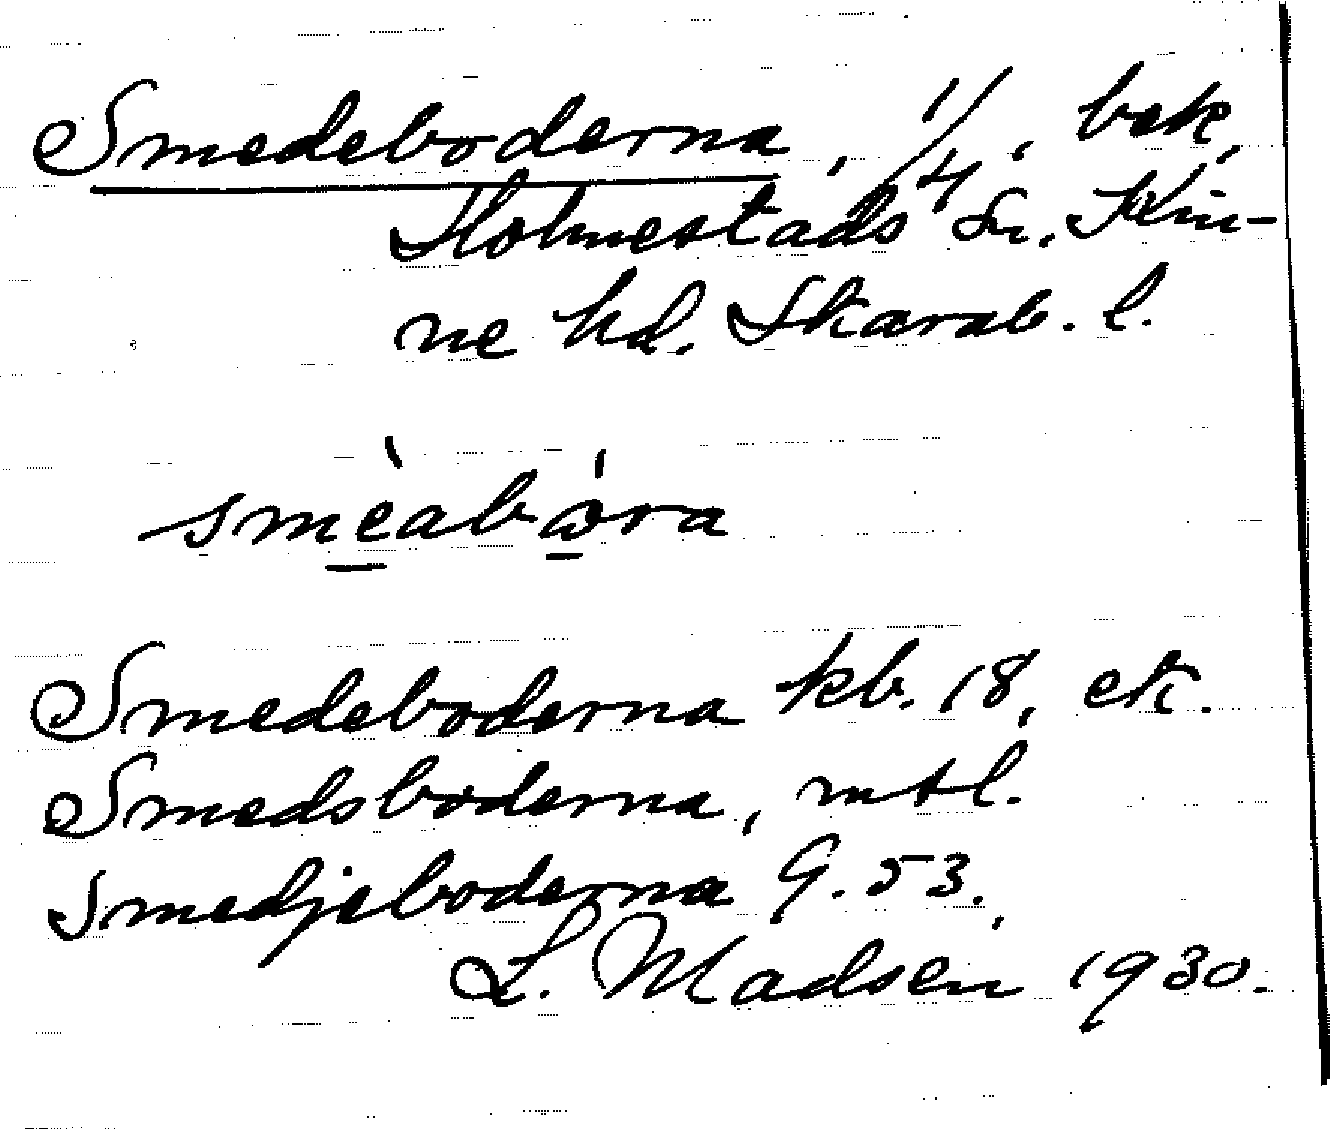 Smedeboderna, 1/4, bek,
Holmestads Sn. Kin-
ne hd. Skarab. l.
smèabòra
Smedeboderna kb. 18, ek.
Smedsboderna, mtl.
Smedjeboderna G. 53.
L. Madsén 1930.